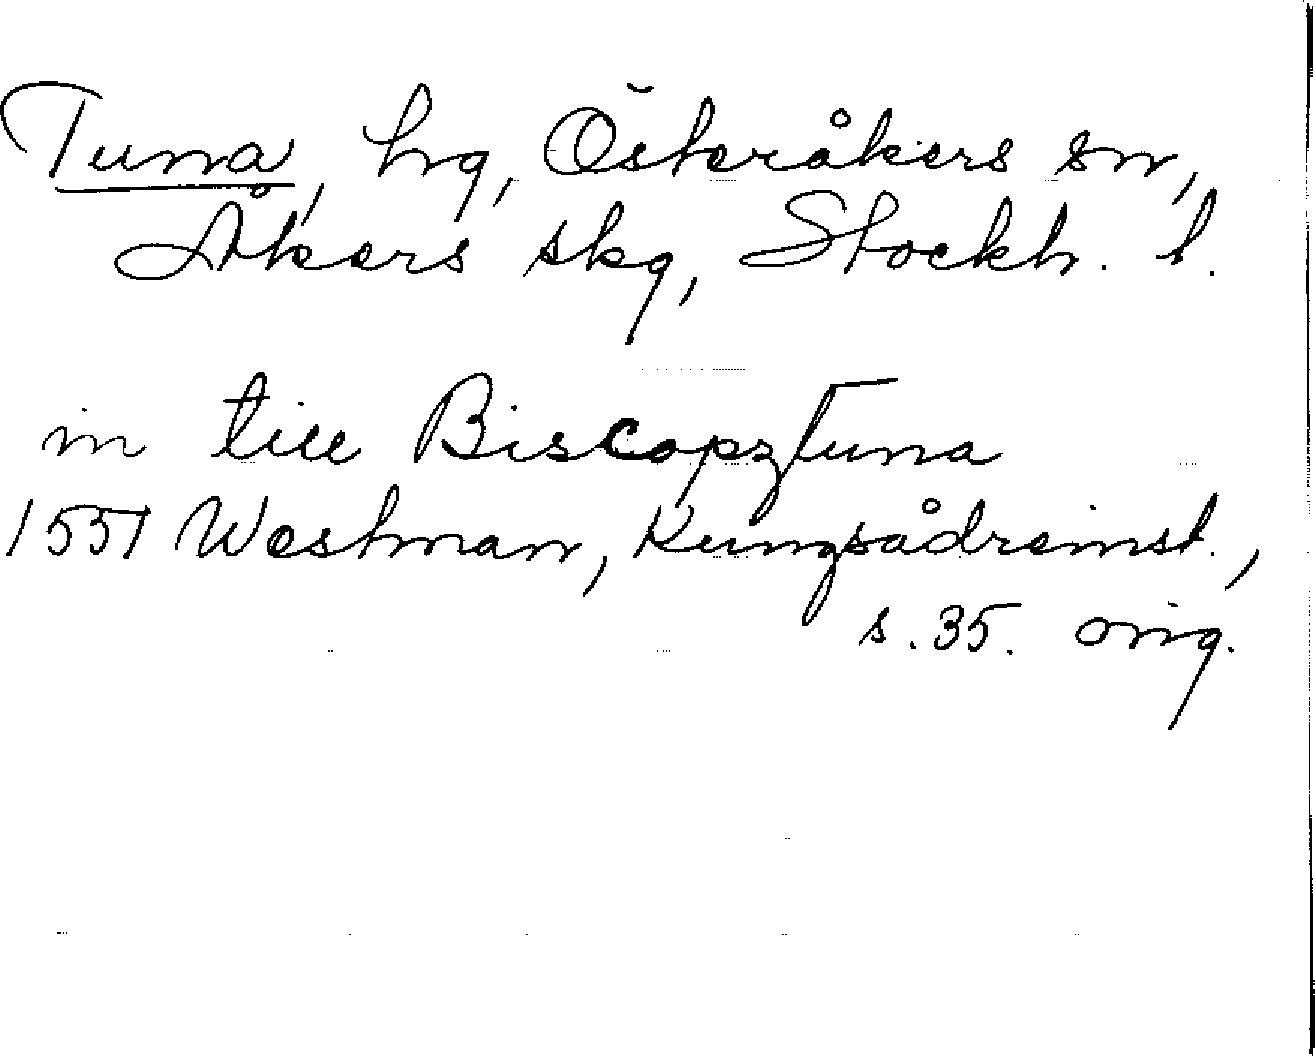 Tuna, hg, Österåkers sn,
Åkers skg, Stockh. l.
in till Biscopztuna
1551 Westman, Kungsådreinst.,
s. 35. orig.